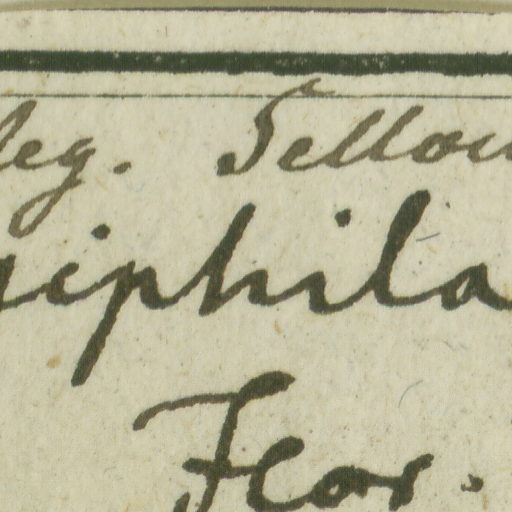 leg. Sellow
giphila
Flor.